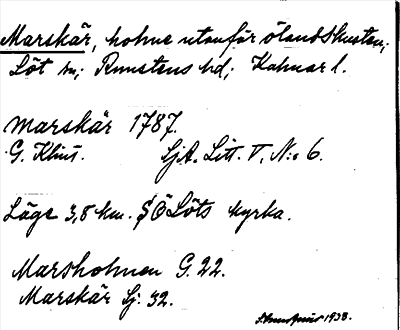 Marskär, holme utanför ölandskusten;
Löt sn; Runstens hd; Kalmar l.
Marskär 1787.
G. Klint. SjA. Litt. V, N:o 6.
Läge 3,8 km. SÖ Löts kyrka.
Marsholmen G. 22.
Marskär Sj. 32.
1933.